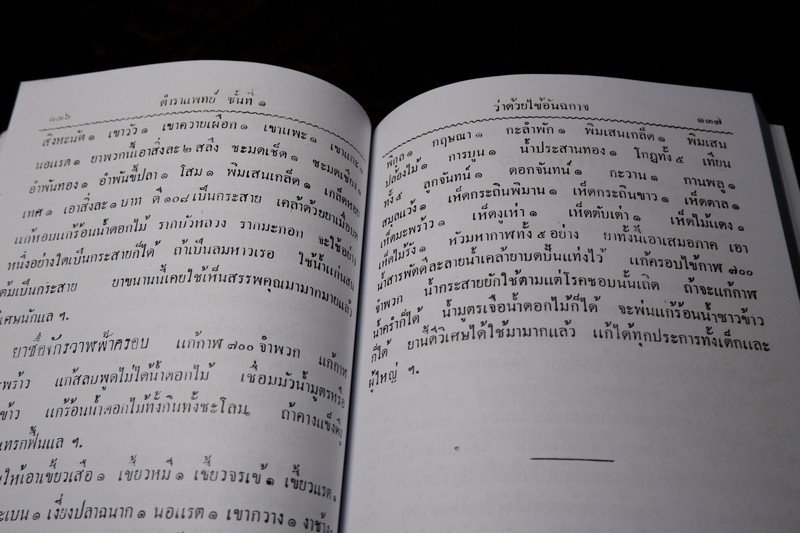 ๑๓๖
ตำราแพทย์ ชั้นที่ ๑
สิงหะนัด ๑ เขาวัว ๑ เขาควายเผือก ๑ เขาแพะ ๑ เขาแกะ ๑
นอแรด ๑ ยาพวกนี้เอาสิ่งละ ๒ สลึง ชะมดเช็ด ๑ ชะมดเชียง ๑
อำพันทอง ๑ อำพันขี้ปลา ๑ โสม ๑ พิมเสนเกล็ด ๑ เกล็ดหอย
เทศ ๑ เอาสิ่งละ ๑ บาท ตี ๑๐๘ เป็นกระสาย เคล้าด้วยยาเมื่อบด
แก้หอบแก้ร้อนน้ำดอกไม้ รากบัวหลวง รากมะกอก จะใช้อย่าง
หนึ่งอย่างใดเป็นกระสายก็ได้ ถ้าเป็นลมหาวเรอ ใช้น้ำแก่นสน
ต้มเป็นกระสาย ยาขนานนี้เคยใช้เห็นสรรพคุณมามากมายแล้ว
วิเศษนักแล ฯ.
ยาชื่อจักรวาฬฟ้าครอบ แก้กาฬ ๗๐๐ จำพวก แก้กาฬ
ะพร้าว แก้สลบพูดไม่ได้น้ำดอกไม้ เชื่อมมัวน้ำมูตรหรือ
ข้าว แก้ร้อนน้ำดอกไม้ทั้งกินทั้งชะโลม ถ้าคางแข็งดีงู
แทรกฟื้นแล ฯ.
ให้เอาเขี้ยวเสือ ๑ เขี้ยวหมี ๑ เขี้ยวจรเข้ ๑ เขี้ยวแรด ๑
ะเบน ๑ เงี่ยงปลาฉนาก ๑ นอแรด ๑ เขากวาง ๑ งาช้าง
ว่าด้วยไข้อันฉกาจ
๑๓๗
พิกูล ๑ กฤษณา ๑ กะลำพัก ๑ พิมเสนเกล็ด ๑ พิมเสน
ปล้องไม้ ๑ การบูน ๑ น้ำประสานทอง ๑ โกฎทั้ง ๕ เทียน
ทั้ง ๕ ลูกจันทน์ ๑ ดอกจันทน์ ๑ กะวาน ๑ กานพลู ๑
สมุลแว้ง ๑ เห็ดกระถินพิมาน ๑ เห็ดกระถินขาว ๑ เห็ดตาล ๑
เห็ดมะพร้าว ๑ เห็ดงูเห่า ๑ เห็ดตับเต่า ๑ เห็ดไม้แดง ๑
เห็ดไม้รัง ๑ หัวมหากาฬทั้ง ๕ อย่าง ยาทั้งนี้เอาเสมอภาค เอา
น้ำสารพัดดีละลายน้ำเคล้ายาบดปั้นแท่งไว้ แก้ครอบไข้กาฬ ๗๐๐
จำพวก น้ำกระสายยักใช้ตามแต่โรคชอบนั้นเถิด ถ้าจะแก้กาฬ
น้ำครำก็ได้ น้ำมูตรเจือน้ำดอกไม้ก็ได้ จะพ่นแก้ร้อนน้ำซาวข้าว
ก็ได้ ยานี้ดีวิเศษได้ใช้มามากแล้ว แก้ได้ทุกประการทั้งเด็กและ
ผู้ใหญ่ ฯ.